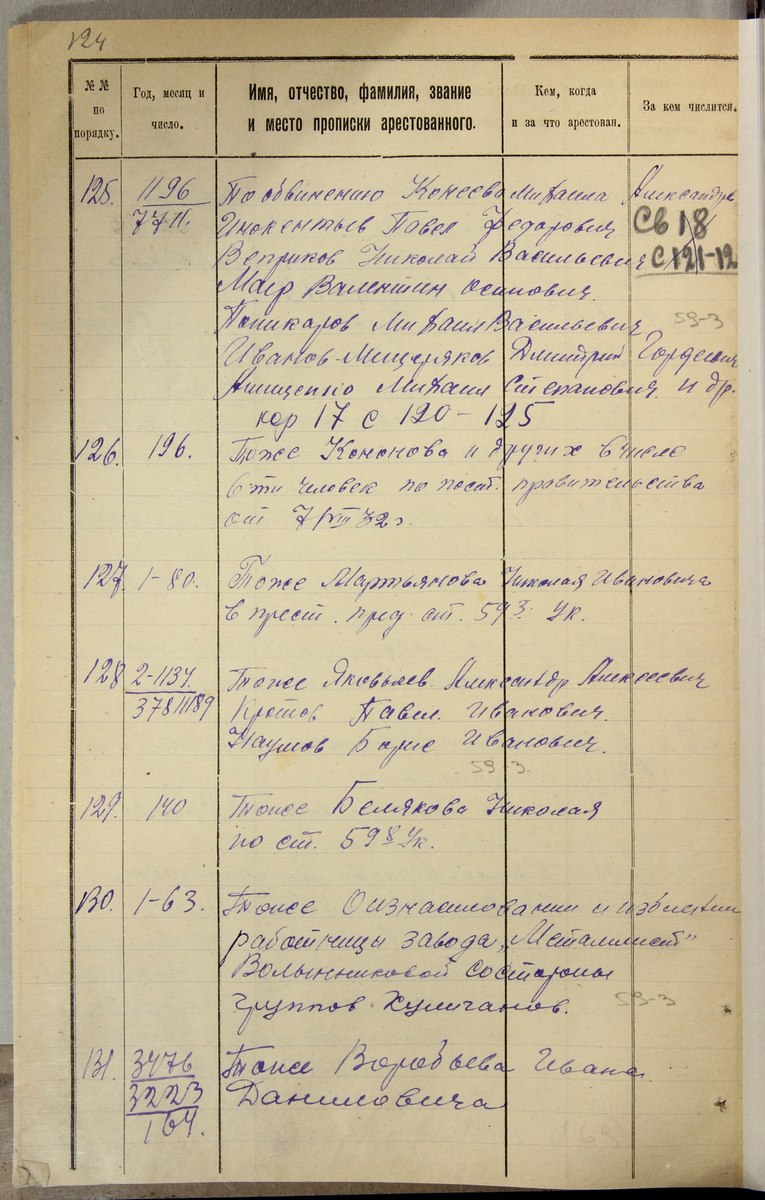 124
№№ по порядку. Год, месяц и число. Имя, отчество, фамилия, звание и место прописки арестованного. Кем, когда и за что арестован. За кем числится.
125. 1196 По обвинению Конеева Михаила Александр
7711. Инокентьев Павел Федорович Св 18
Веприков Николай Васильевич С121-12
Маер Валентин Осипович.
Поникаров Михаил Васильевич 59-3
Иванов-Мещеряков Дмитрий Гордеевич
Анищенко Михаил Степанович и др.
кор 17 с 120-125
126. 196. Тоже Кононова и других в числе
6ти человек по пост. правительства
от 7/VIII 32 г.
127. 1-80. Тоже Мартьянова Николая Ивановича
в прест. пред. ст. 59 3. Ук.
128 2-1134. Тоже Яковлев Александр Алексеевич
Кротов Павел Иванович.
Наумов Борис Иванович.
59-3.
129. 140 Тоже Белякова Николая
по ст. 59 8 Ук.
130. 1-63. Тоже О изнасиловании и избиении
работницы завода „Металлист"
Волынниковой со стороны
группов хулиганов. 59-3
131. 3476 Тоже Воробьева Ивана
3223 Даниловича
164.